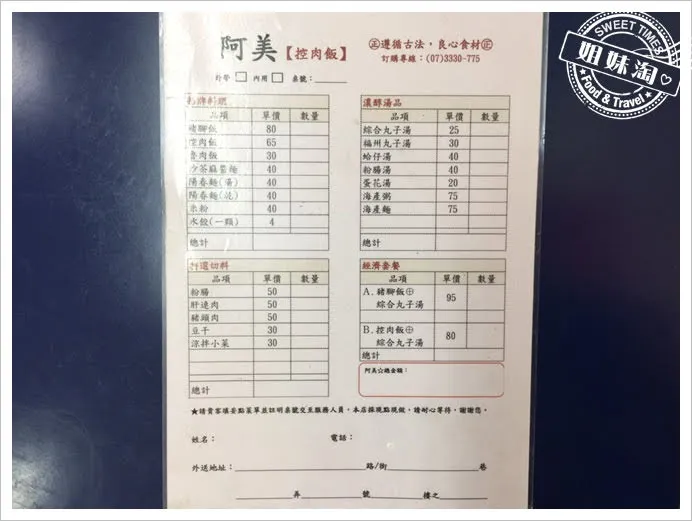 SWEET TIMES
姐妹淘
Food & Travel
阿美【控肉飯】
㊣遵循古法，良心食材㊣
訂購專線：(07)3330-775
外帶□ 內用□ 桌號：
招牌料理
品項 單價 數量
豬腳飯 80
控肉飯 65
魯肉飯 30
沙茶麻醬麵 40
陽春麵(湯) 40
陽春麵(乾) 40
米粉 40
水餃(一顆) 4
總計
濃醇湯品
品項 單價 數量
綜合丸子湯 25
福州丸子湯 30
蛤仔湯 40
粉腸湯 40
蛋花湯 20
海產粥 75
海產麵 75
總計
精選切料
品項 單價 數量
粉腸 50
肝連肉 50
豬頭肉 50
豆干 30
涼拌小菜 30
總計
經濟套餐
品項 單價 數量
A.豬腳飯⊕ 95
綜合丸子湯
B.控肉飯⊕ 80
綜合丸子湯
總計
阿美☆總金額：
★請貴客填妥點菜單並註明桌號交至服務人員，本店採現點現做，請耐心等待，謝謝您。
姓名： 電話：
外送地址： 路/街 巷
弄 號 樓之